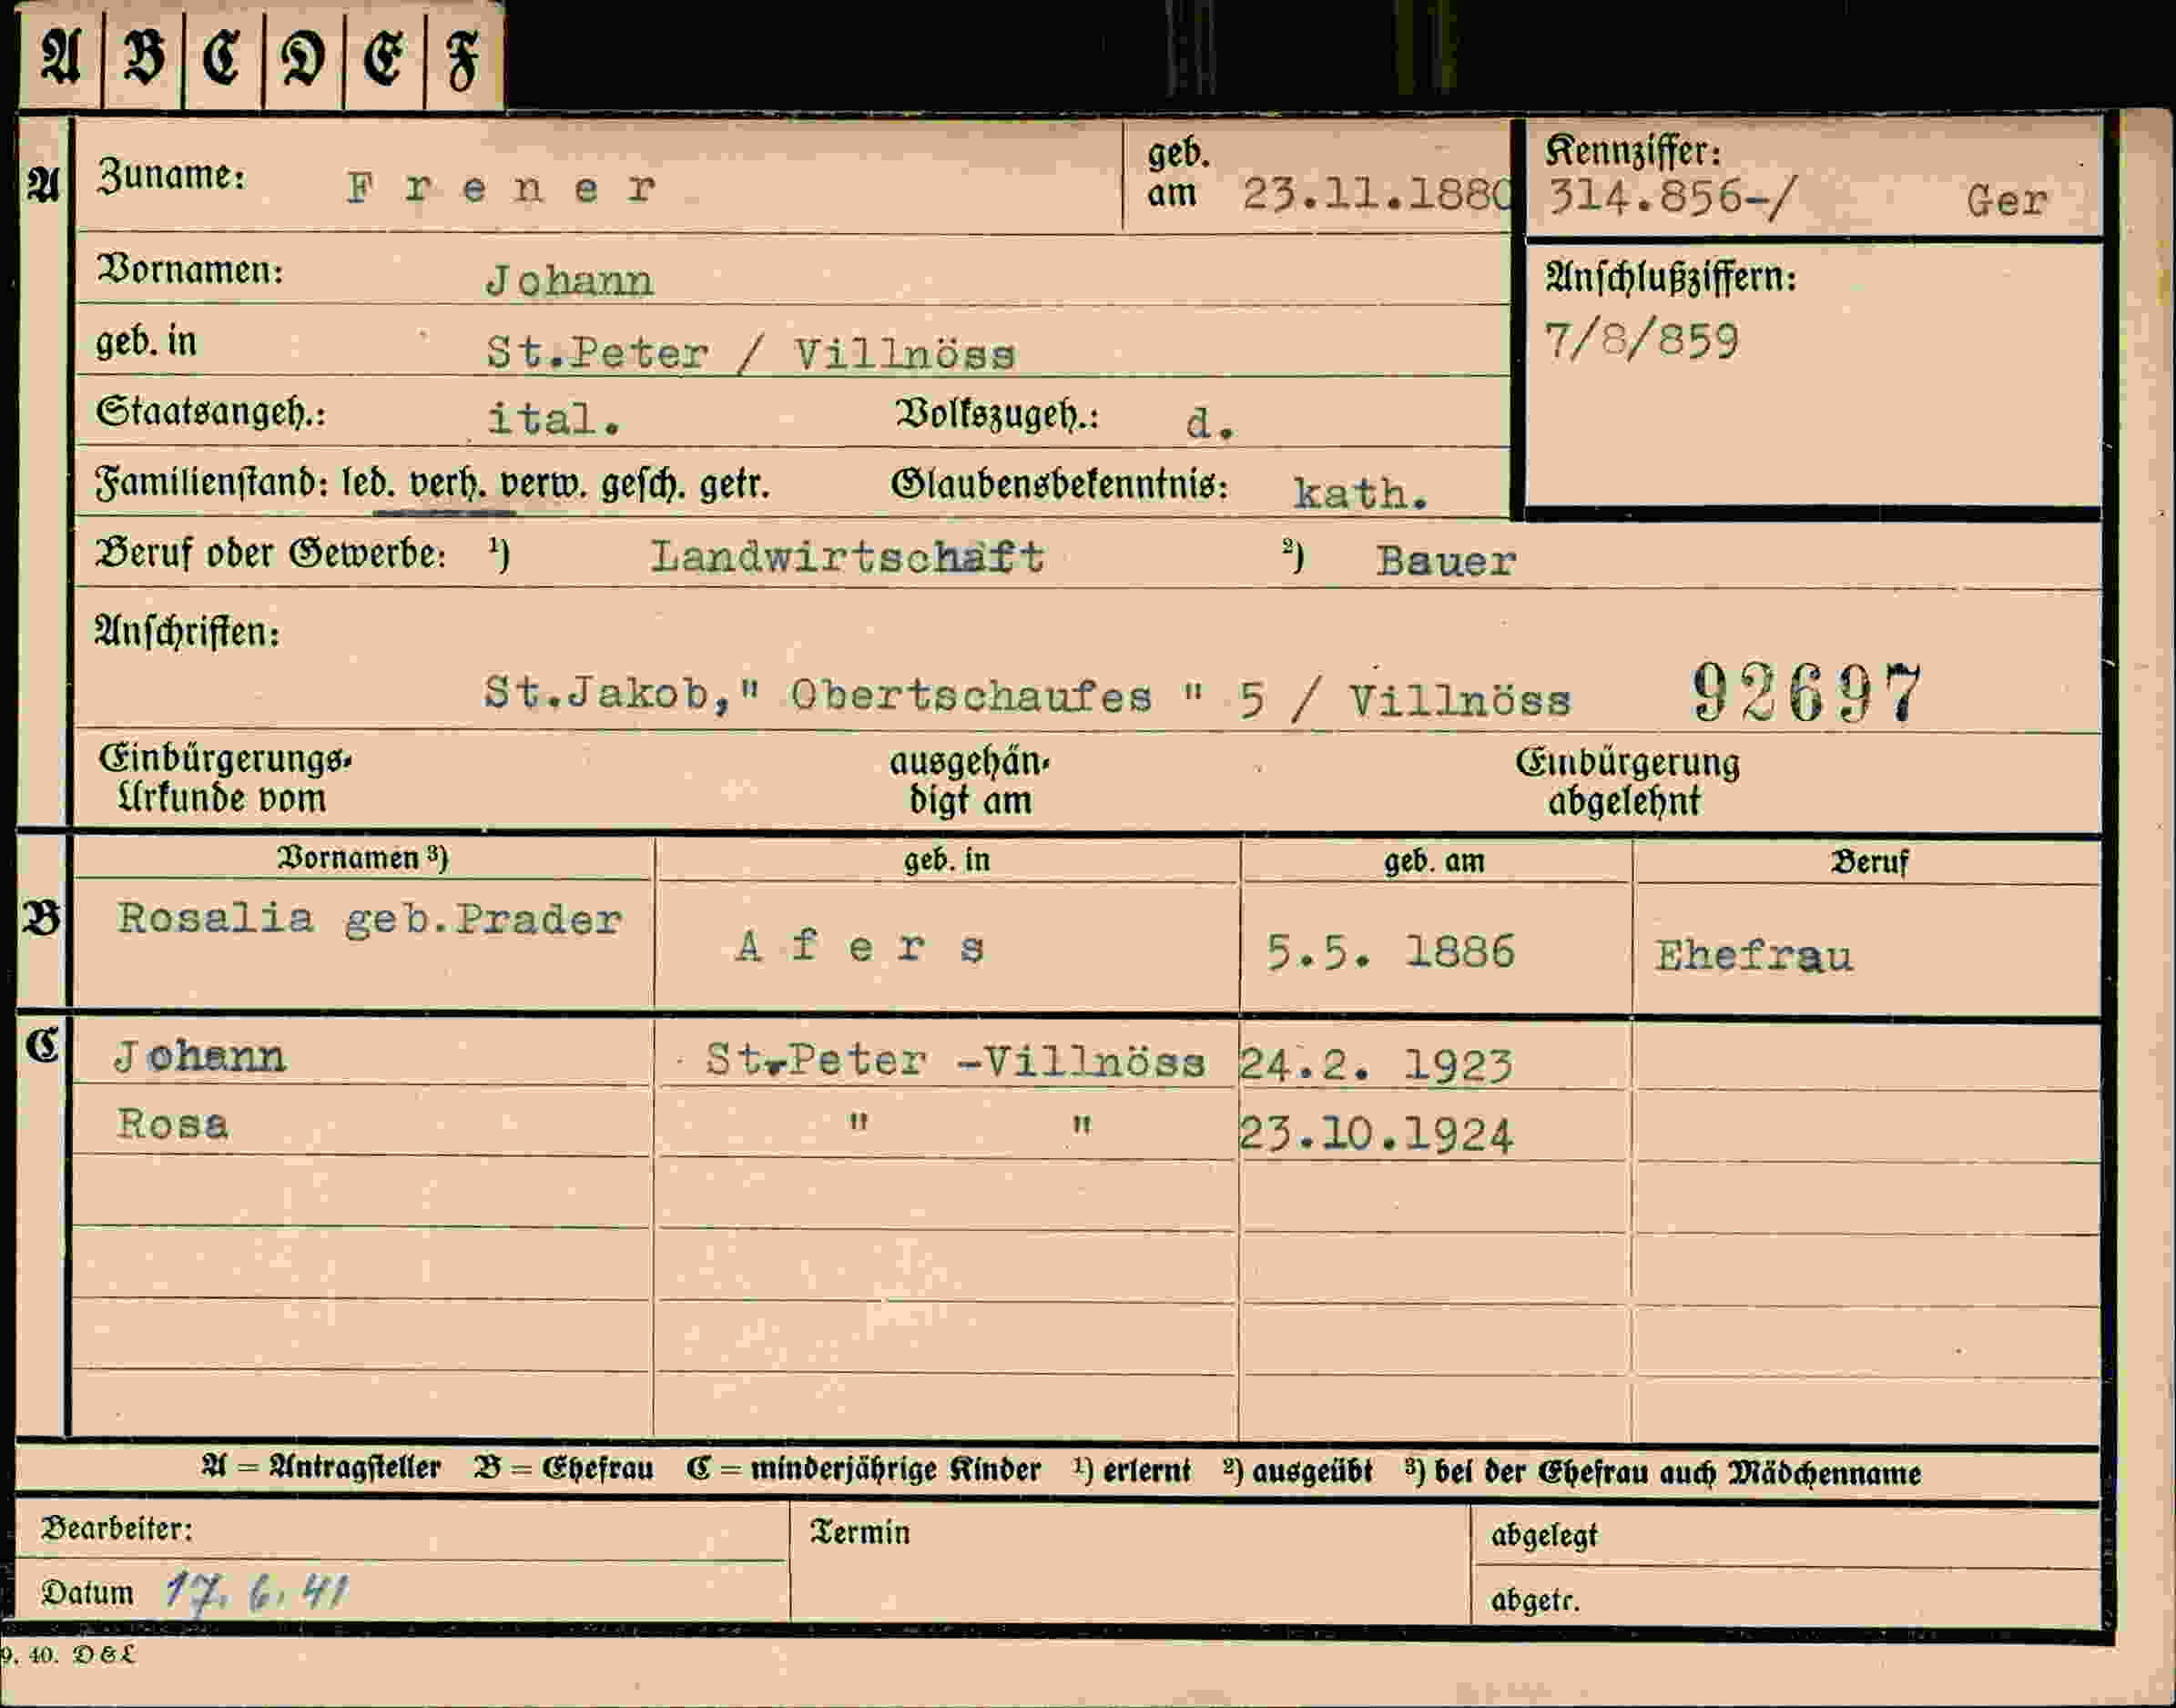 A B C D E F
A Zuname: Frener geb. am 23.11.1880 Kennziffer: 314.856-/ Ger
Vornamen: Johann Anschlußziffern:
geb. in St.Peter / Villnöss 7/8/859
Staatsangeh.: ital. Volkszugeh.: d.
Familienstand: led. verh. verw. gesch. getr. Glaubensbekenntnis: kath.
Beruf oder Gewerbe: ¹) Landwirtschaft ²) Bauer
Anschriften:
St.Jakob," Obertschaufes " 5 / Villnöss 92697
Einbürgerungs- ausgehän- Einbürgerung
Urkunde vom digt am abgelehnt
Vornamen ³) geb. in geb. am Beruf
B Rosalia geb.Prader Afers 5.5. 1886 Ehefrau
C Johann St.Peter -Villnöss 24.2. 1923
Rosa " " 23.10.1924
A = Antragsteller B = Ehefrau C = minderjährige Kinder ¹) erlernt ²) ausgeübt ³) bei der Ehefrau auch Mädchenname
Bearbeiter: Termin abgelegt
Datum 17. 6. 41 abgetr.
9. 40. D & L